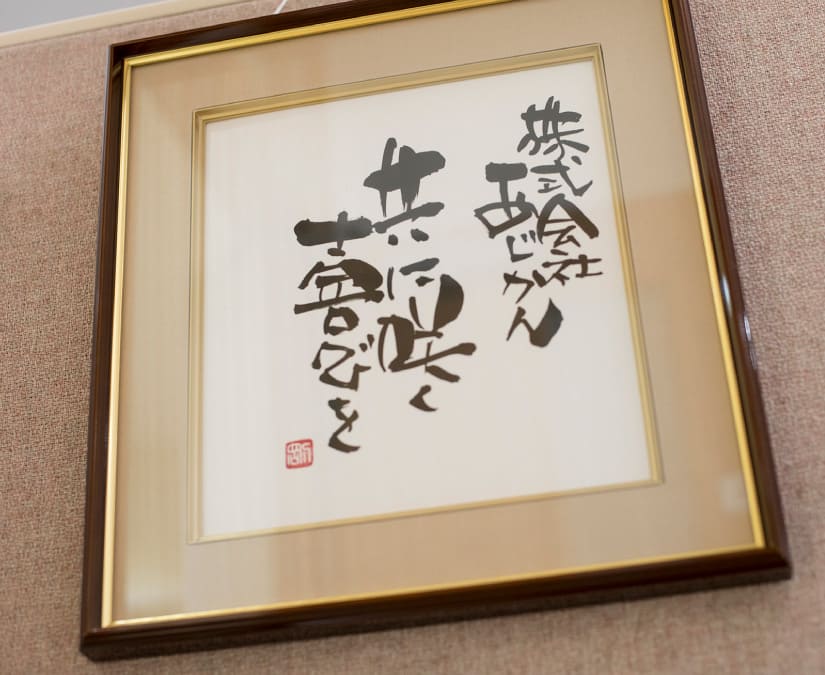 株式会社
あじかん
共に咲く
喜びを